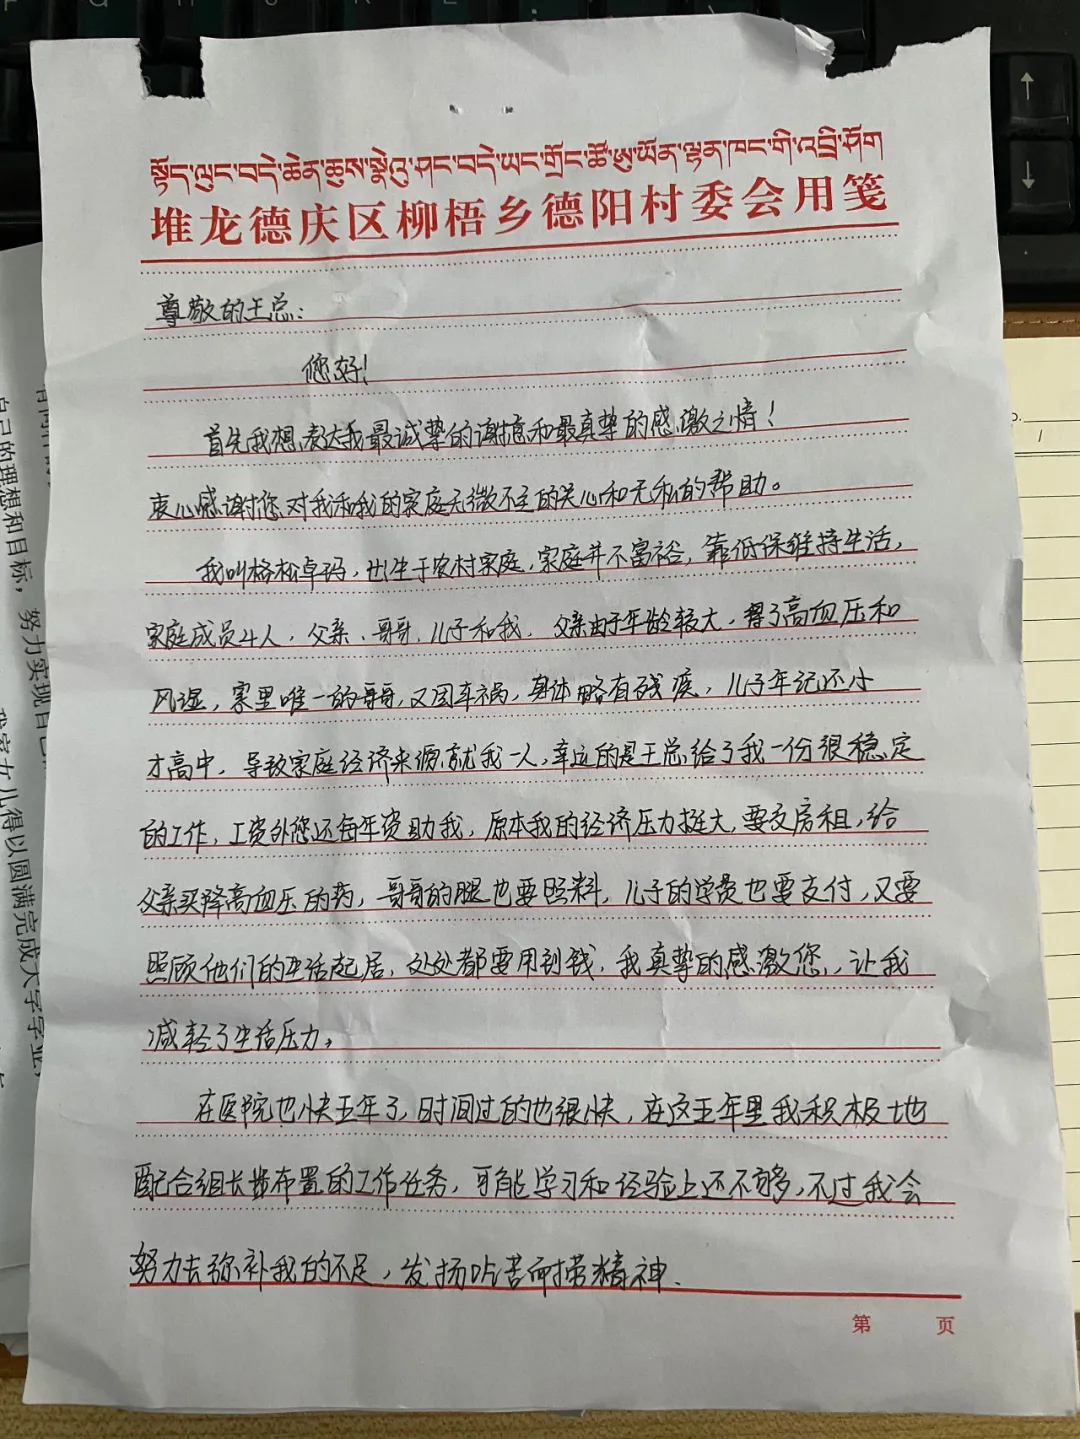 སྟོད་ལུང་བདེ་ཆེན་ཆུས་སྣེའུ་ཤང་བདེ་ཡང་གྲོང་ཚོ་ཨུ་ཡོན་ལྷན་ཁང་གི་འབྲི་ཤོག
堆龙德庆区柳梧乡德阳村委会用笺
尊敬的王总：
您好！
首先我想表达我最诚挚的谢意和最真挚的感激之情！
衷心感谢您对我和我的家庭无微不至的关心和无私的帮助。
我叫格松卓玛，出生于农村家庭，家庭并不富裕，靠低保维持生活，
家庭成员4人，父亲、哥哥、儿子和我，父亲由于年龄较大，得了高血压和
风湿，家里唯一的哥哥，又因车祸，身体略有残疾，儿子年记还小
才高中，导致家庭经济来源就我一人，幸运的是王总给了我一份很稳定
的工作，工资外您还每年资助我，原本我的经济压力挺大，要交房租，给
父亲买降高血压的药，哥哥的腿也要照料，儿子的学费也要支付，又要
照顾他们的生活起居，处处都要用到钱，我真挚的感激您，让我
减轻了生活压力，
在医院也快五年了，时间过的也很快，在这五年里我积极地
配合组长布置的工作任务，可能学习和经验上还不够多，不过我会
努力去弥补我的不足，发扬吃苦耐劳精神、
第 页
自己的理想和目标，努力实现自己
我家女儿得以圆满完成大学学业，